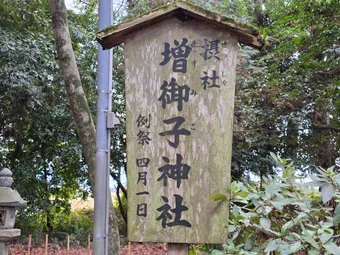 摂社
増御子神社
例祭 四月一日